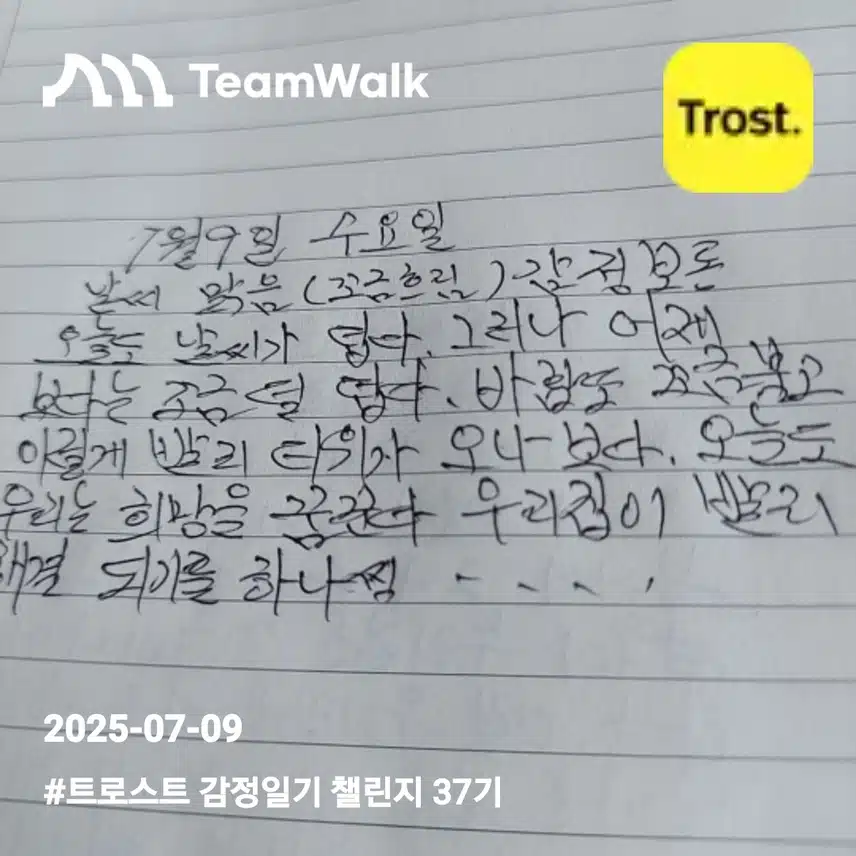 TeamWalk
Trost.
7월9일 수요일
날씨 맑음(조금흐림) 감정보통
오늘도 날씨가 덥다. 그러나 어제
보다는 조금덜 덥다. 바람도 조금불고
이렇게 빨리 더위가 오나보다. 오늘도
우리는 희망을 꿈꾼다 우리집이 빨리
해결 되기를 하나씩 . . . .
2025-07-09
#트로스트 감정일기 챌린지 37기